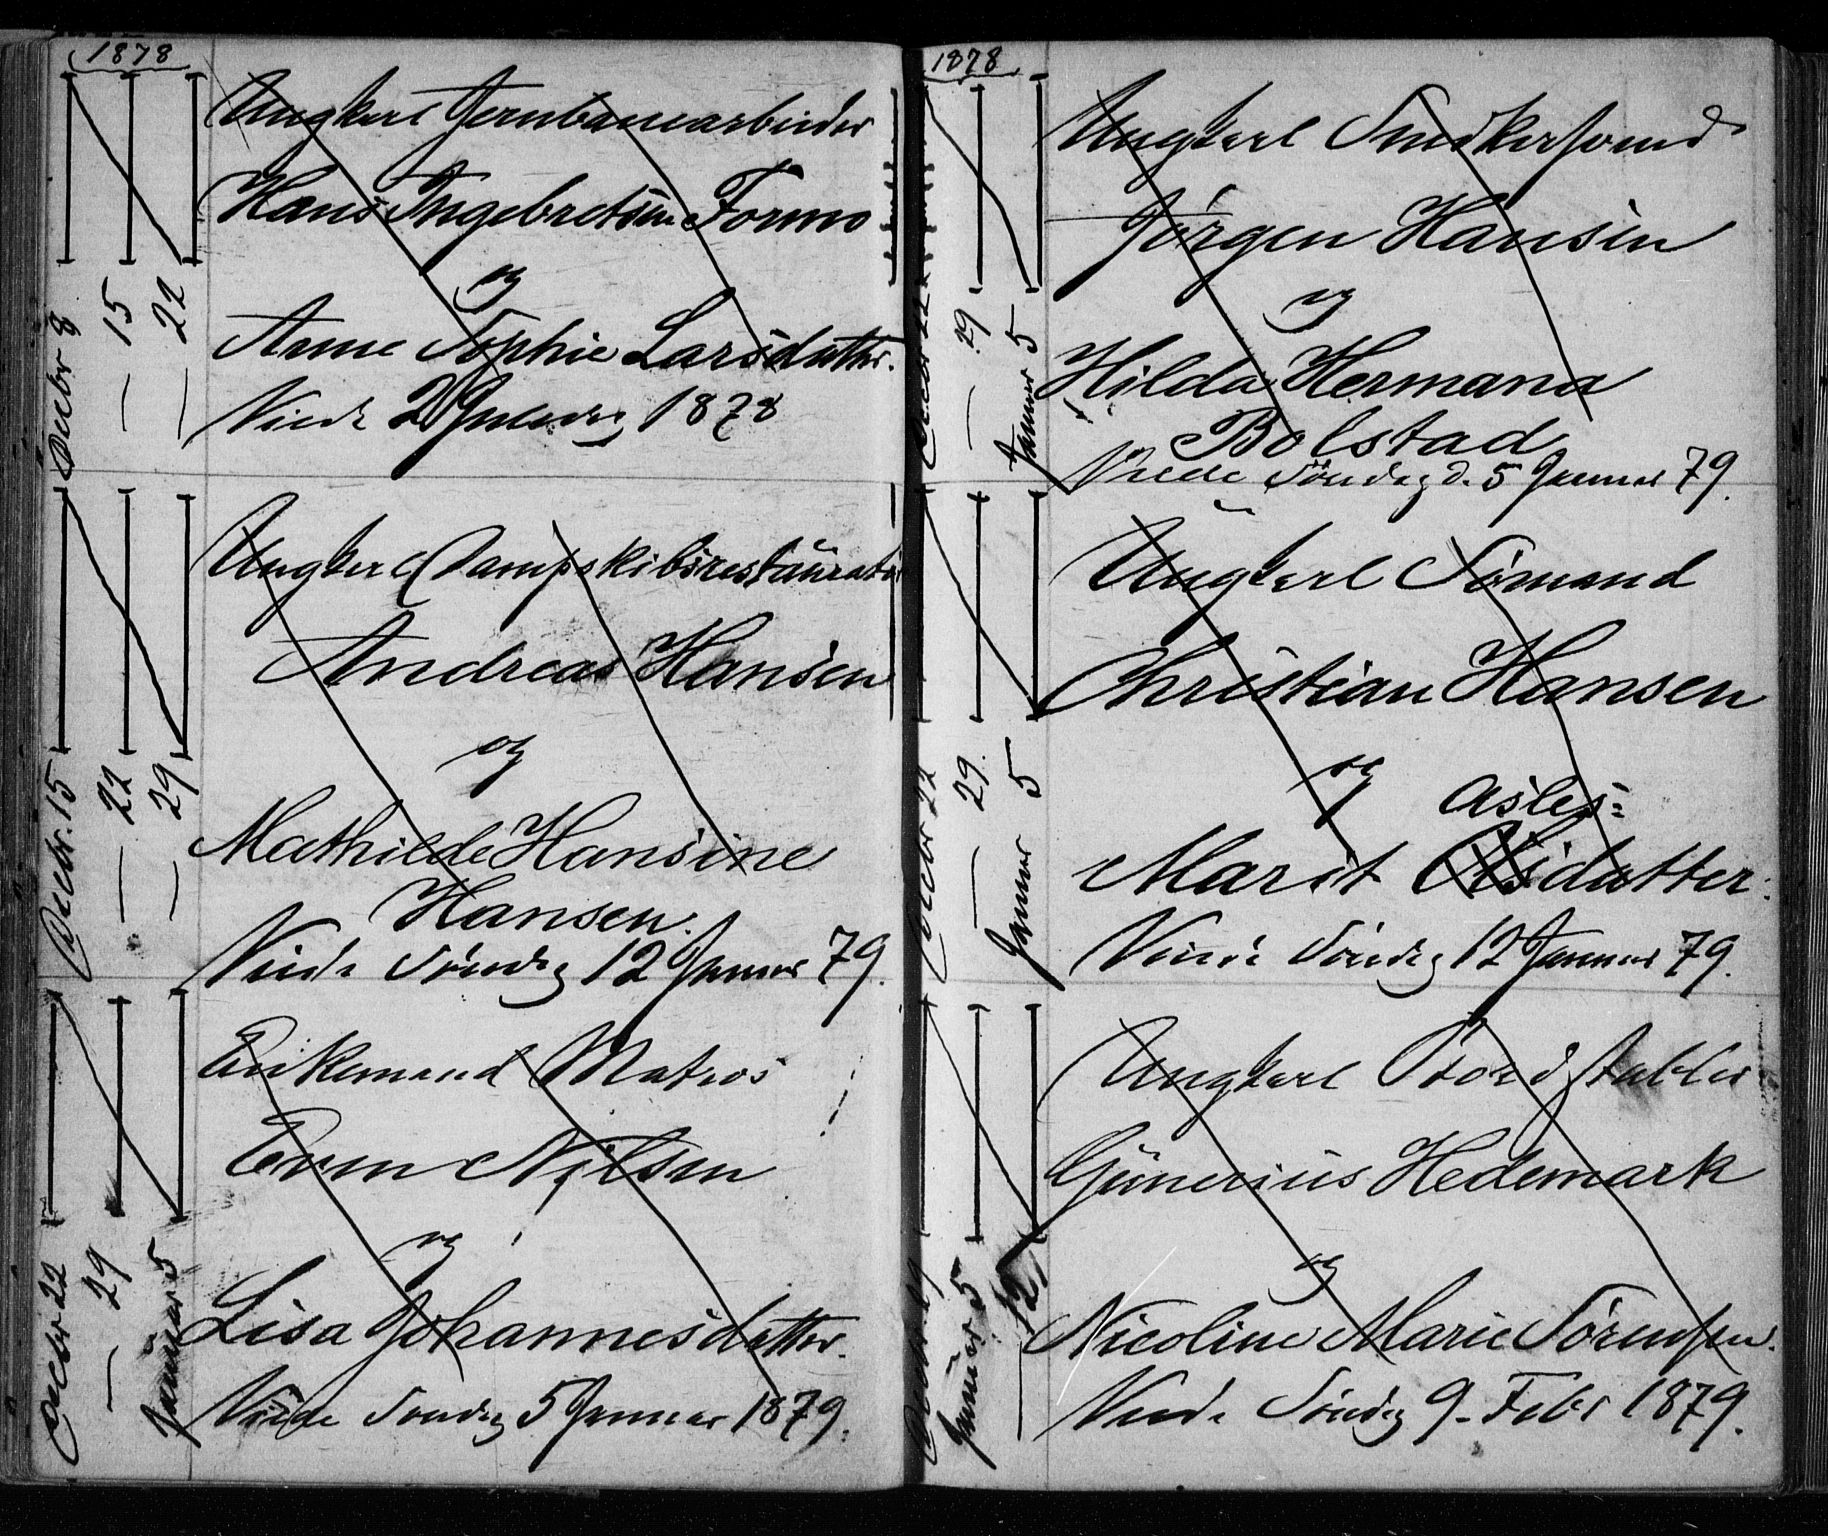 1878
Decbr 8
— 15
— 22
Ungkarl Jernbanearbeider
Hans Ingebretsen Formo
og
Anne Sophie Larsdatter.
Viede 2 Juledag 1878
Decbr. 15
— 22
— 29
Ungkarl Dampskibsrestauratør
Andreas Hansen
og
Mathilde Hansine
Hansen.
Viede Søndag 12 Januar 79.
Decbr 22
— 29
Januar 5
Enkemand Matros
Even Nilsen
og
Lisa Johannesdatter.
Viede Søndag 5 Januar 1879.
1878
Decbr 22
— 29
Januar 5
Ungkarl Snedkersvend
Jørgen Hansen
og
Hilda Hermana
Bolstad
Viede Søndag d. 5 Januar 79.
Decbr 22
— 29.
Januar 5
Ungkarl Sømand
Christian Hansen
og
Asles=
Marit Olsdatter.
Viede Søndag 12 Januar 79.
Decbr 29
Januar 5
— 12
Ungkarl Bordstabler
Gunerius Hedemark
og
Nicoline Marie Sørensen.
Viede Søndag 9. Febr 1879.